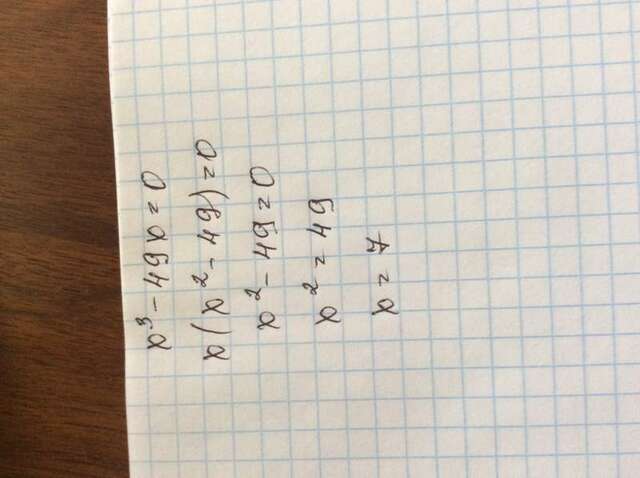 x³ - 49x = 0
x(x² - 49) = 0
x² - 49 = 0
x² = 49
x = 7